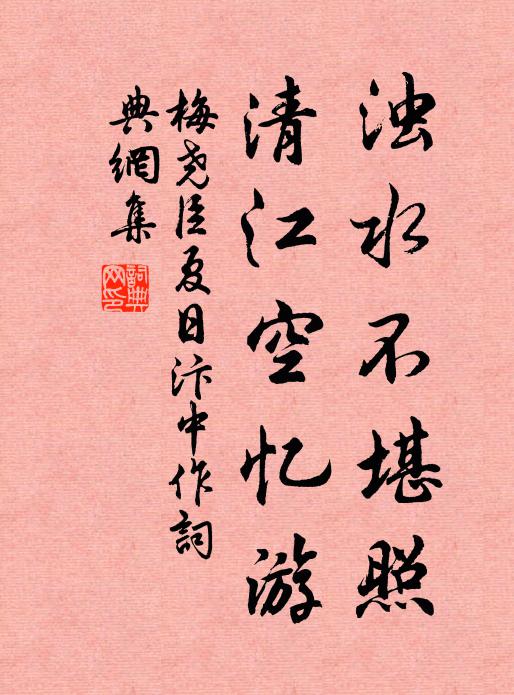 浊水不堪照
清江空忆游
梅尧臣夏日汴中作詞
典網集
詞典網印